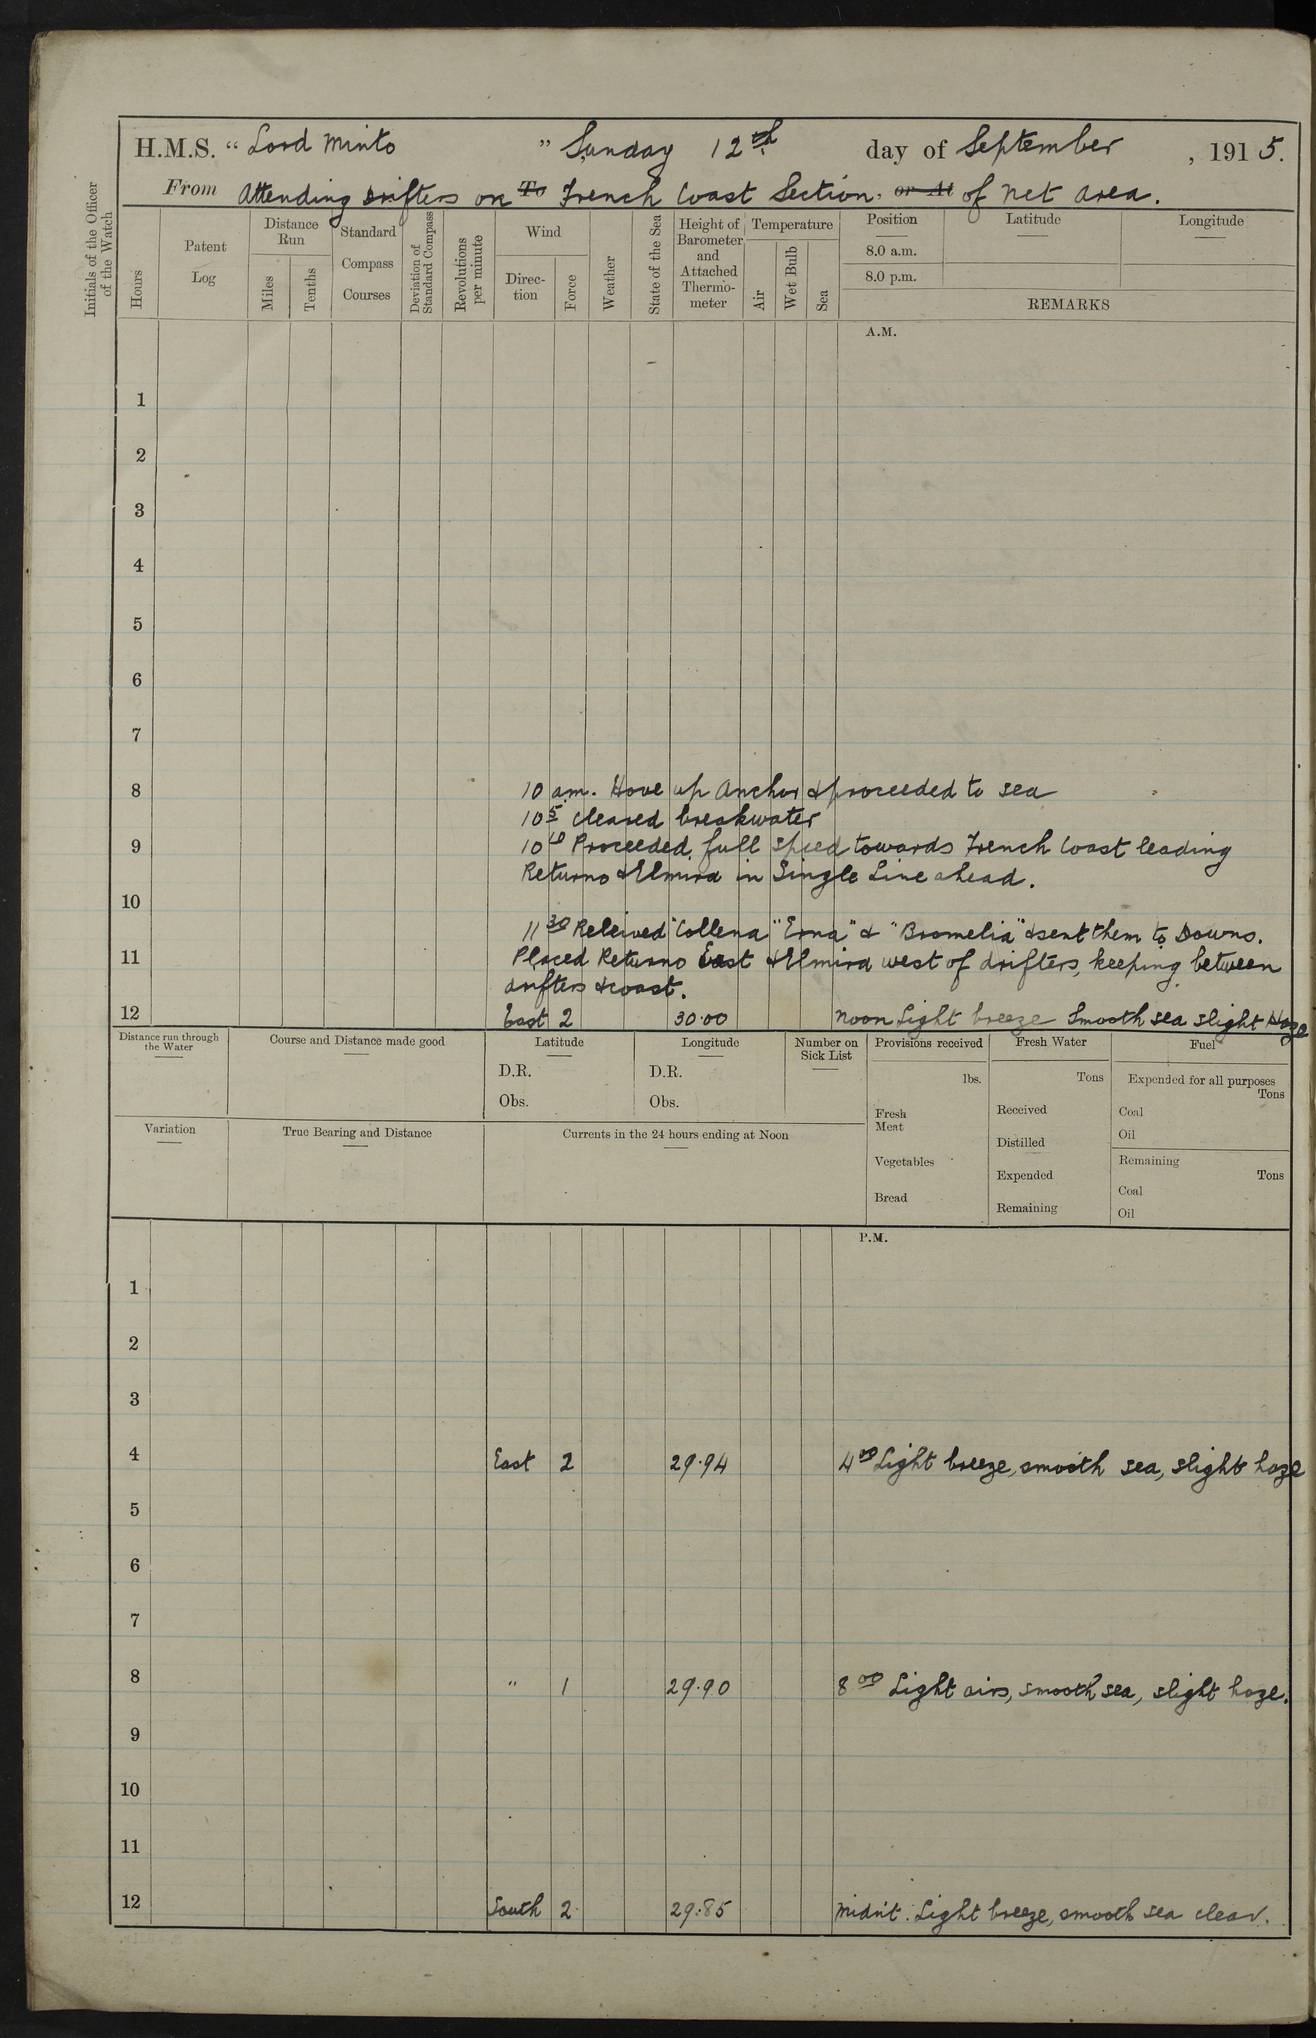 H.M.S. “ Lord Minto ” Sunday 12th day of September , 1915.
From Attending drifters on To French Coast Section, or At of net area.
Initials of the Officer of the Watch
Hours
Patent Log
Distance Run
Miles
Tenths
Standard Compass Courses
Deviation of Standard Compass
Revolutions per minute
Wind
Direc-tion
Force
Weather
State of the Sea
Height of Barometer and Attached Thermo-meter
Temperature
Air
Wet Bulb
Sea
Position
8.0 a.m.
8.0 p.m.
Latitude
Longitude
REMARKS
A.M.
1
2
3
4
5
6
7
8 10 am. Hove up Anchor & proceeded to sea
10 5 cleared breakwater
9 10 10 Proceeded full speed towards French Coast leading
Returno & Elmira in Single Line ahead.
10
11 30 Releived "Collena" "Erna" & "Bromelia" & sent them to Downs.
11 Placed Returno East & Elmira west of drifters, keeping between
drifters & coast.
12 East 2 30.00 Noon Light breeze Smooth sea slight Haze
Distance run through the Water
Course and Distance made good
Latitude
D.R.
Obs.
Longitude
D.R.
Obs.
Number on Sick List
Provisions received
lbs.
Fresh Meat
Vegetables
Bread
Fresh Water
Tons
Received
Distilled
Expended
Remaining
Fuel
Expended for all purposes
Tons
Coal
Oil
Remaining
Tons
Coal
Oil
Variation
True Bearing and Distance
Currents in the 24 hours ending at Noon
P.M.
1
2
3
4 East 2 29.94 4 00 Light breeze, smooth sea, slight haze
5
6
7
8 " 1 29.90 8 00 Light airs, smooth sea, slight haze.
9
10
11
12 South 2 29.85 Midn't. Light breeze, smooth sea clear.